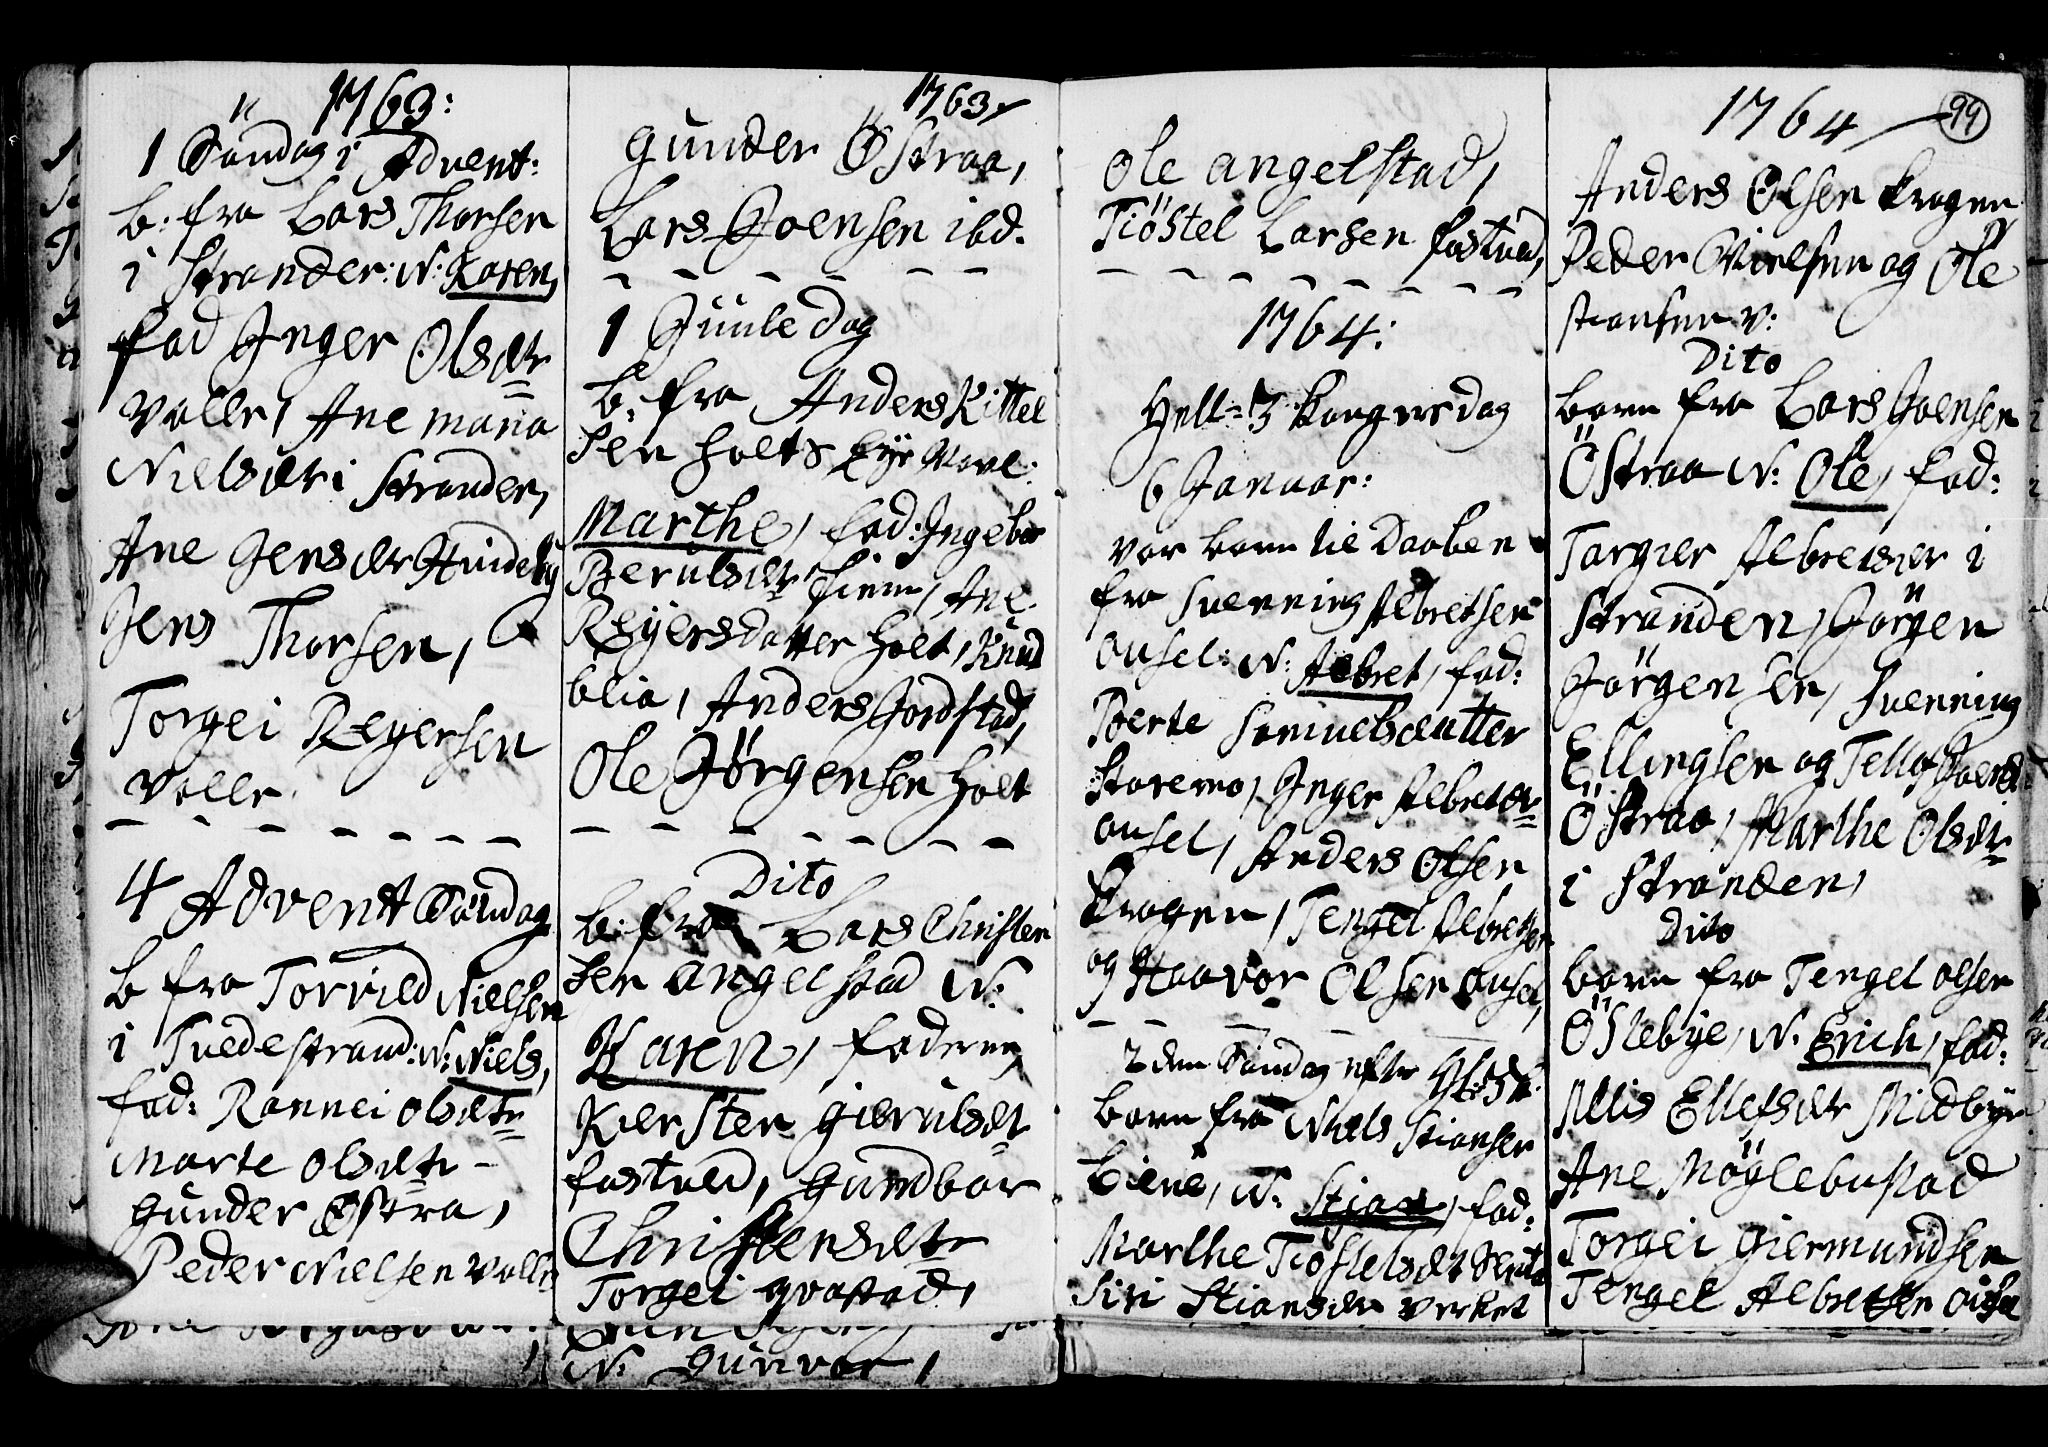 1763:
1 Søndag i Advent:
b: fra Lars Thorsen
i Strander: N: Karen,
fad Inger Olsdtr
Valle, Ane maria
Nielsdtr i Strander,
Ane Jensdtr
Jens Thorsen,
Torgei Reyersen
Valle.
4 Advent Søndag
b fra Torvild Nielsen
i Tvedestrand: N: Niels,
fad: Rannei Olsdtr
Marte Olsdtr
Gunder Østra,
Peder Nielsen Valle
1763
gunder Østraa,
Lars Joensen ibd.
1 Juule Dag
b: fra Anders Kittel
sen holts Eye
Marthe, fad: Ingebor
Berulsdtr Ane
Reyersdatter Holt, Knud
blia, Anders Jordstad,
Ole Jørgensen Holt
Dito
b: fra Lars Christen
sen angelstad N:
Karen, faderne,
Kiersten Gierulsdtr
fostved, Gundbor
Christensdtr
Torgei qvastad,
N: Gunvor,
Ole angelstad,
Tiøstel Larsen fostved,
1764:
Hell= 3 Kongers dag
6 Januar:
var barn til Daaben
fra Svenning Albretsen
Ousel: N: Albret, fad:
Berte Samuelsdatter
Staremo, Inger Albretdtr
ousel, Anders Olsen
Krogen, Tengel Albretsen
og Haavor Olsen Ousel,
2 den Søndag efter H: 3 K:
barn fra Niels Stiansen
N: Stian, fad:
Marthe Tiøstelsdtr
Siri Stiansdtr verket
1764
99
Anders Olsen Krogen
Peder Nielsen og Ole
stiansen v:
Dito
barn fra Lars Joensen
Østraa N: Ole, fad:
Targier Albretsdtr i
Stranden, Jørgen
Jørgensen, Svenning
Ellingsen og Tellof Joens:
Østraa, Marthe Olsdtr
i Stranden,
Dito
barn fra Tengel olsen
Østebye, N. Erich, fad:
Allis Ellefsdtr Midbye
Ane Møglebustad
Torgei Giermundsen
Tengel Albretsen